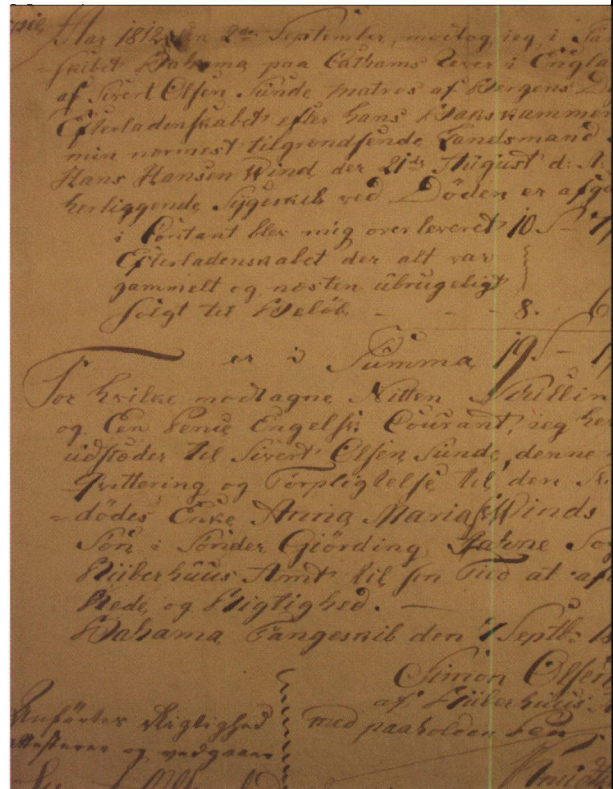 Aar 1812 den 2de September, modtog jeg, i
=skibet Bahama paa Cathams Rever i Engla
af Sivert Olsen Sunde Matros af Bergens
Efterladenskabet efter Hans
min nærmest tilgrændsende Landsmand
Hans Hansen Wind der 21de August d: A
herliggende Sygeskib ved Döden er afg
i Contant blev mig overleveret 10.S
Efterladenskabet der alt var
gammelt og næsten ubrugeligt
solgt til Belöb - - - 8. 6
er i Summa 19.S
For hvilke modtagne Nitten Skillin
og Een Pence Engelsk Courant, jeg her
udstæder til Sivert Olsen Sunde, denne
Qvittering og Forpligtelse til den
=dödes Enke Anna Maria Winds
Sön i Sönder Giörding
Riiberhuus Amt til sin Tiid at af
Rede og Rigtighed.
Bahama Fangeskib den 7 Septb:
Simon Olsen
af Riiberhuus
med paaholden Pen
Anförtes Rigtighed
attesterer og vedgaaer